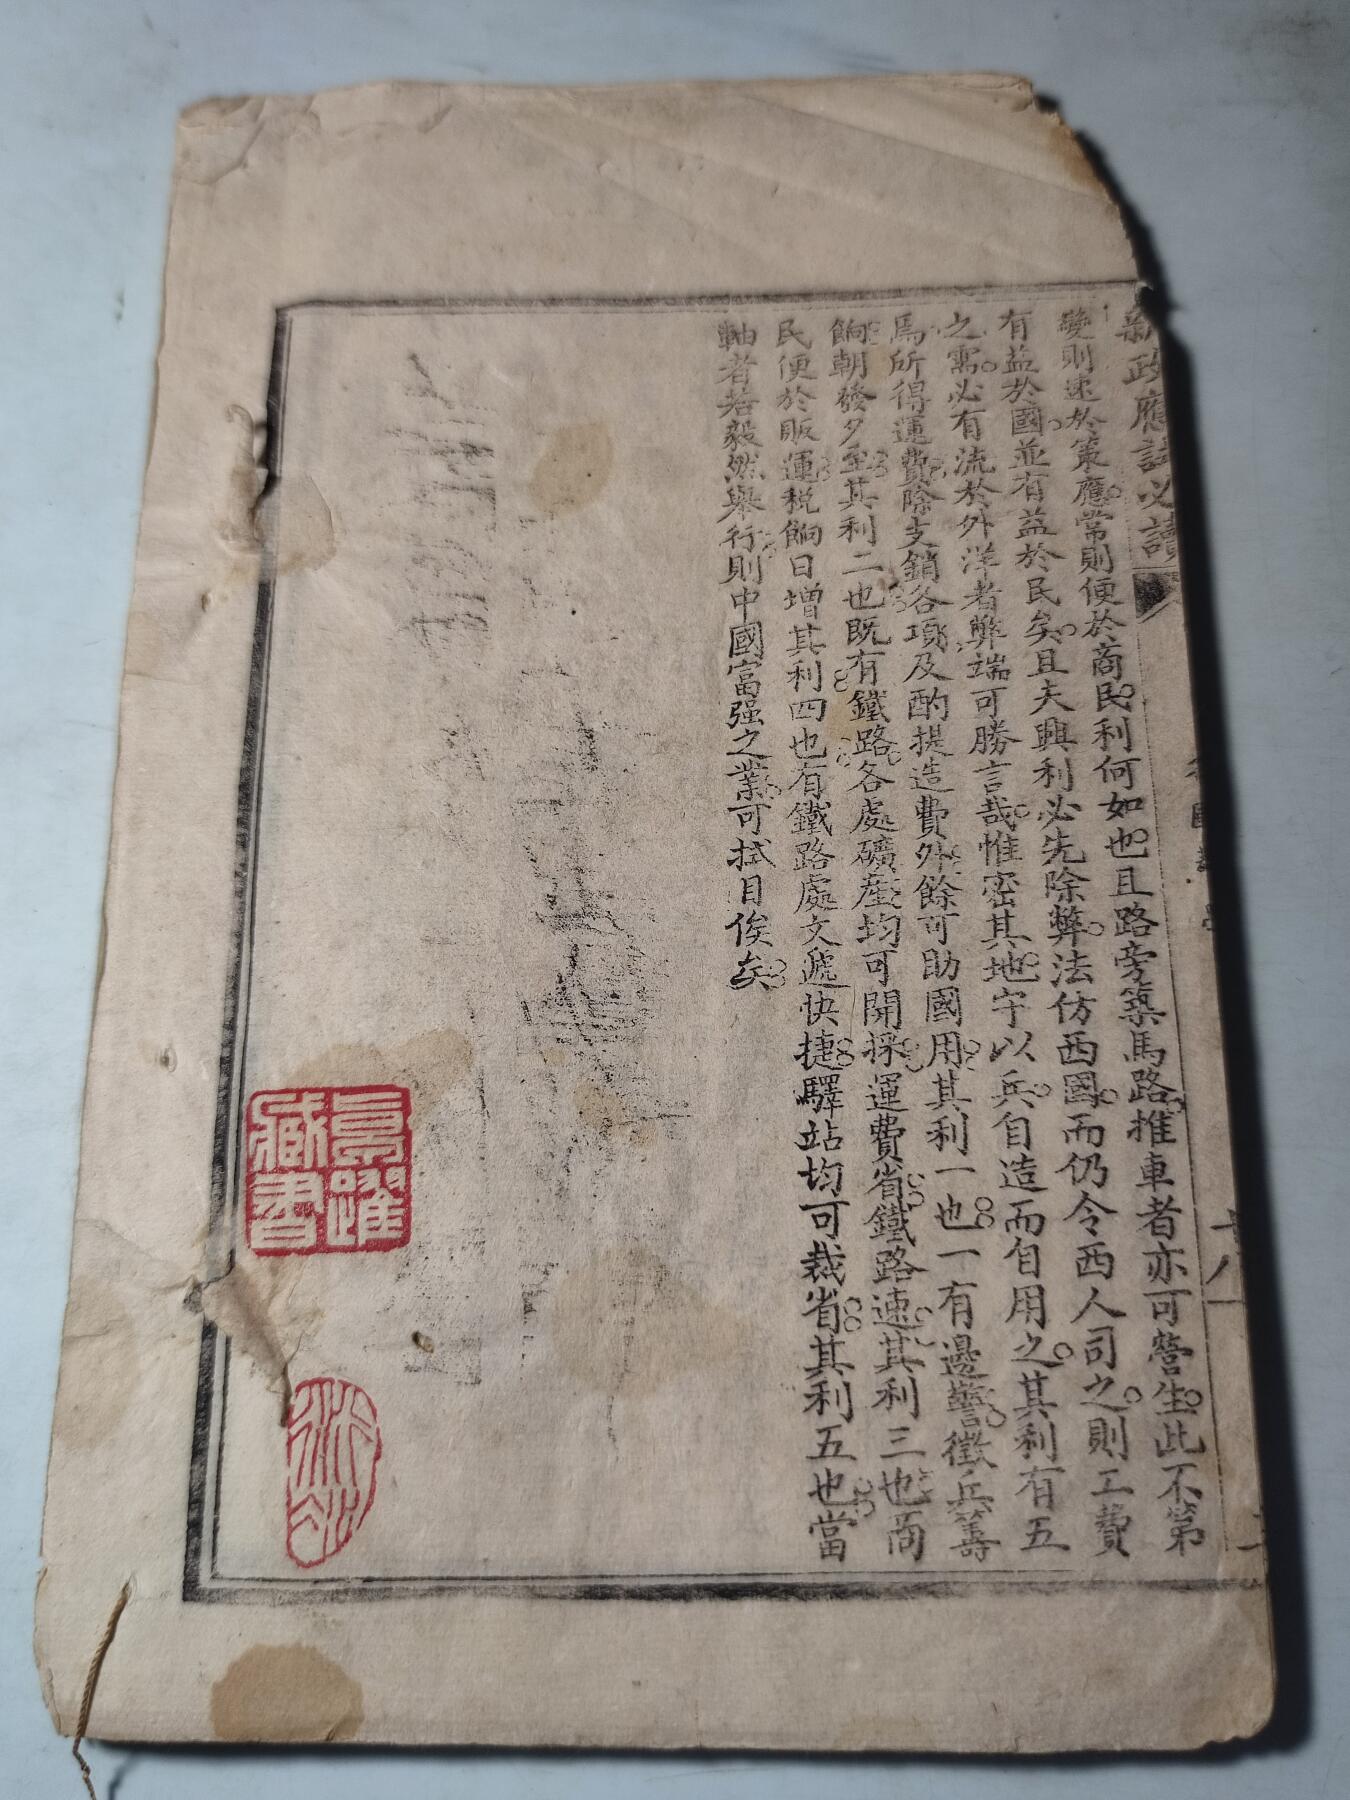 新政應試必讀
變則速於策應常則便於商民利何如也且路旁築馬路推車者亦可營生此不第
有益於國並有益於民矣且夫興利必先除弊法仿西國而仍令西人司之則工費
之需必有流於外洋者弊端可勝言哉惟密其地守以兵自造而自用之其利有五
焉所得運費除支銷各項及酌提造費外餘可助國用其利一也一有邊警徵兵籌
餉朝發夕至其利二也既有鐵路各處礦產均可開採運費省鐵路速其利三也商
民便於販運稅餉日增其利四也有鐵路處文遞快捷驛站均可裁省其利五也當
軸者若毅然舉行則中國富强之業可拭目俟矣
十八
藏書